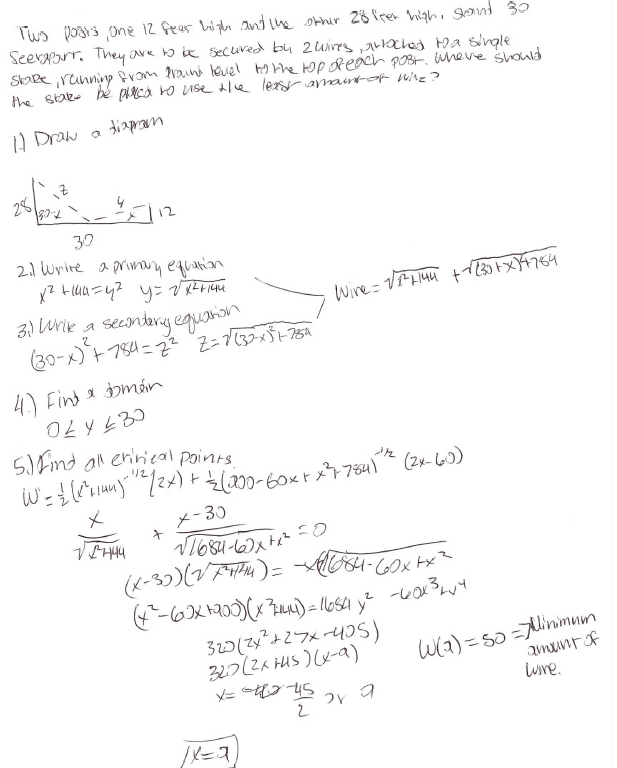 Two posts, one 12 feet high and the other 28 feet high, stand 30
feet apart. They are to be secured by 2 wires, attached to a single
stake, running from ground level to the top of each post. Where should
the stake be placed to use the least amount of wire?
1.) Draw a diagram
z
28
30-x
y
x
12
30
2.) Write a primary equation
x² + 144 = y² y = √x²+144
Wire = √x²+144 + √(30+x)²+784
3.) Write a secondary equation
(30-x)² + 784 = z² z = √(30-x)²+784
4.) Find x domain
0 ≤ x ≤ 30
5.) Find all critical points
W' = ½(x²+144)^-1/2 (2x) + ½(900-60x+x²+784)^-1/2 (2x-60)
x/√x²+144 + x-30/√1684-60x+x² = 0
(x-30)(√x²+144) = -x√1684-60x+x²
(x²-60x+900)(x²+144) = 1684x² -60x³+x⁴
320(2x²+27x-405)
320(2x+45)(x-9)
x = -45/2 or 9
W(9) = 50 => Minimum
amount of
wire.
x=9